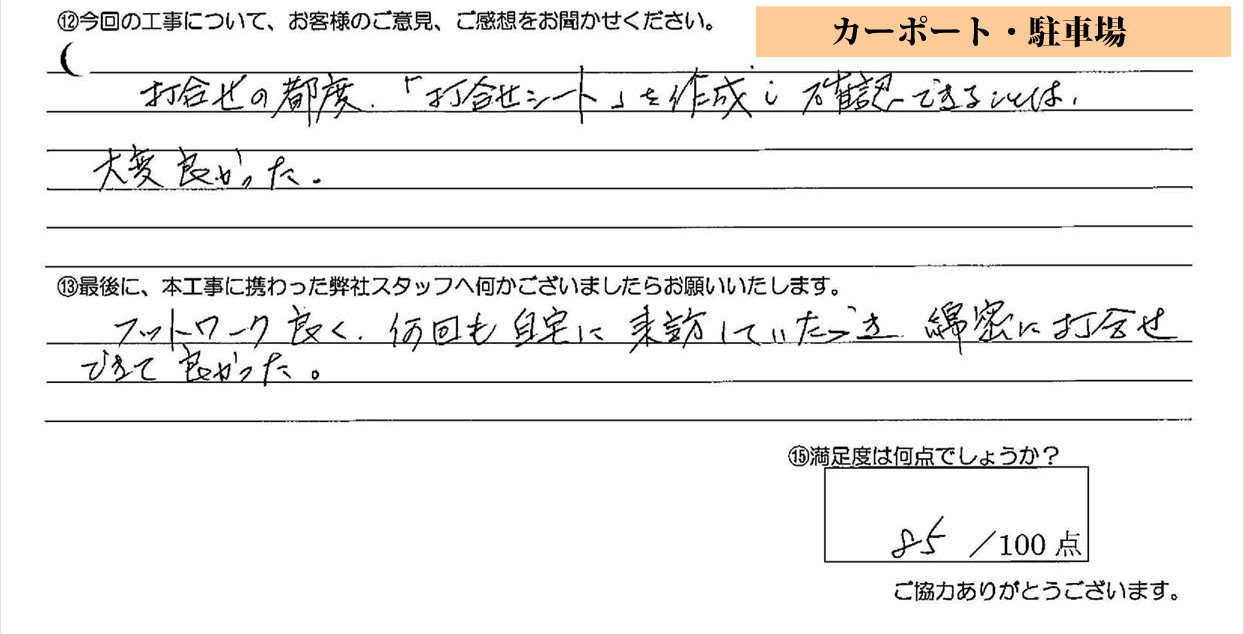 ⑫今回の工事について、お客様のご意見、ご感想をお聞かせください。
カーポート・駐車場
打合せの都度、「打合せシート」を作成し確認できることは、
大変良かった。
⑬最後に、本工事に携わった弊社スタッフへ何かございましたらお願いいたします。
フットワーク良く、何回も自宅に来訪していただき 綿密に打合せ
できて良かった。
⑮満足度は何点でしょうか？
85 /100 点
ご協力ありがとうございます。